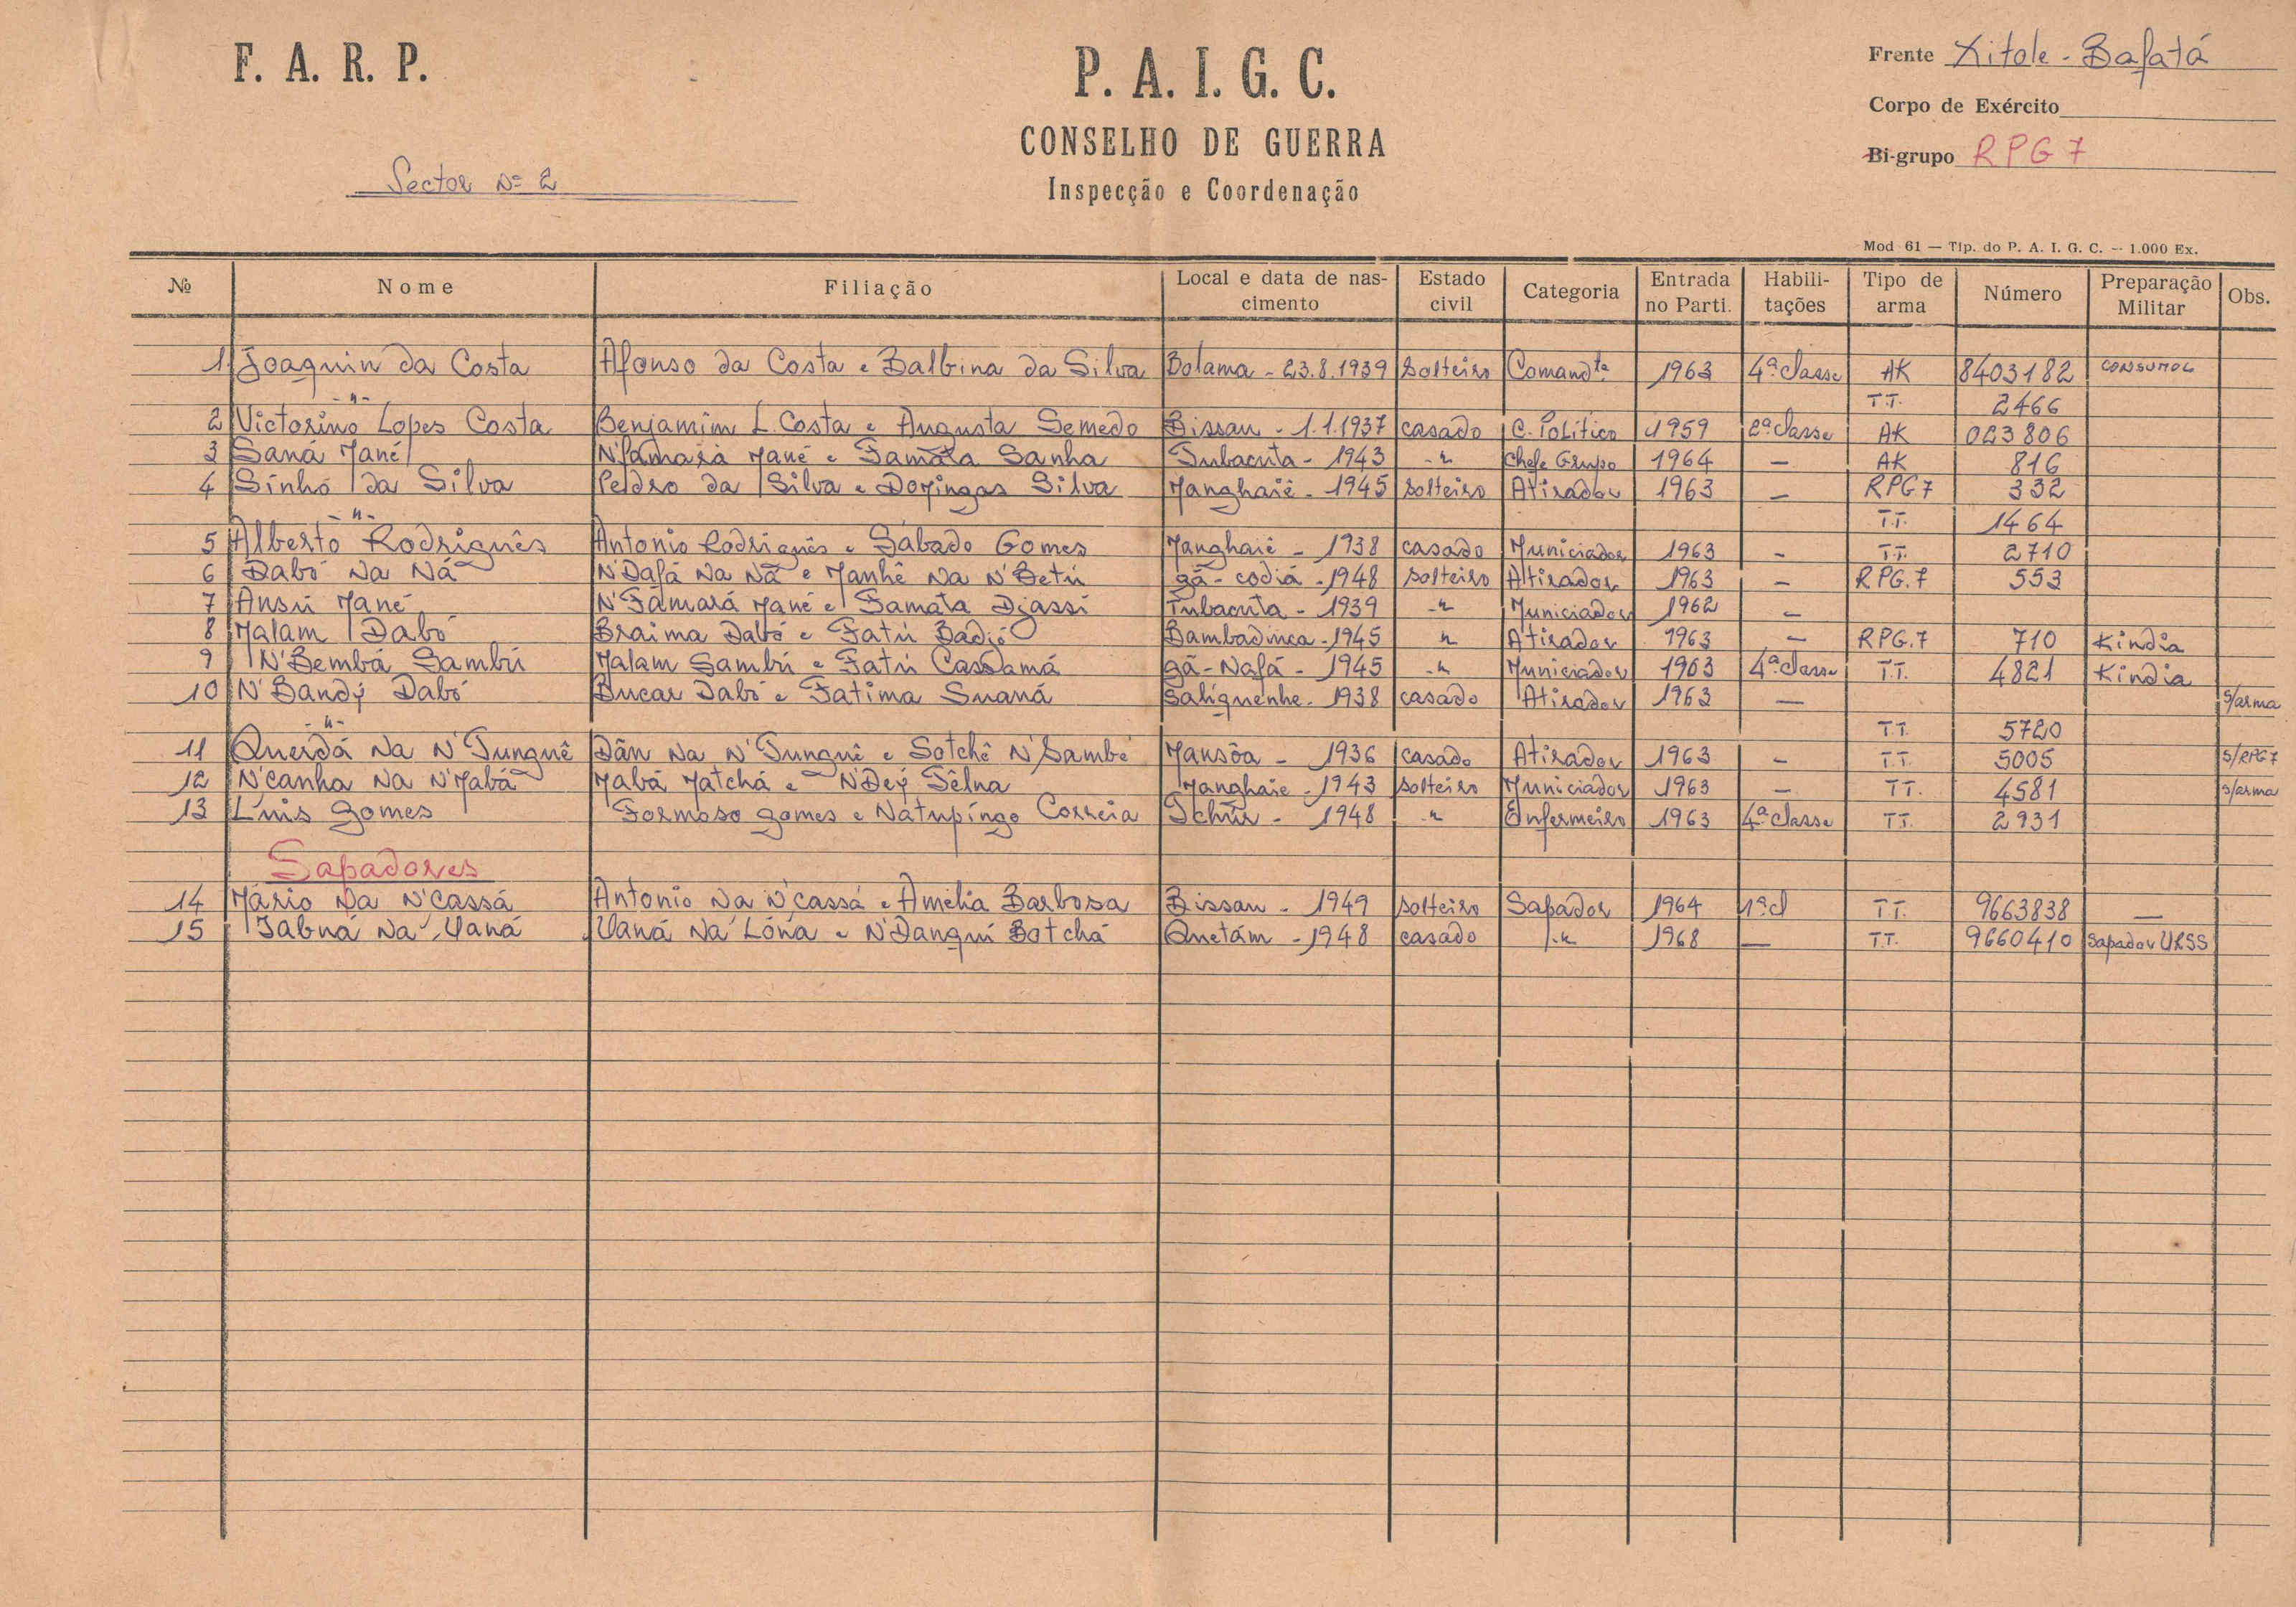 F. A. R. P.
P. A. I. G. C.
CONSELHO DE GUERRA
Inspecção e Coordenação
Sector Nº 2
Frente Xitole - Bafatá
Corpo de Exército
Bi-grupo RPG 7
Mod 61 — Tip. do P. A. I. G. C. — 1.000 Ex.
Nº Nome Filiação Local e data de nascimento Estado civil Categoria Entrada no Parti. Habilitações Tipo de arma Número Preparação Militar Obs.
1 Joaquin da Costa Afonso da Costa e Balbina da Silva Bolama - 23.8.1939 Solteiro Comandte 1963 4ª classe AK 8403182
-"- T.T. 2466
2 Victorino Lopes Costa Benjamim L. Costa e Augusta Semedo Bissau - 1.1.1937 casado C. Político 1959 2ª classe AK 023806
3 Saná Mané N'famará Mané e Famata Sanha Tubacuta - 1943 -"- Chefe Grupo 1964 — AK 816
4 Sinhó da Silva Pedro da Silva e Domingas Silva Manghaiê - 1945 Solteiro Atirador 1963 — RPG 7 332
-"- T.T. 1464
5 Alberto Rodriguês Antonio Rodriguês e Sábado Gomes Manghaiê - 1938 casado Municiador 1963 - T.T. 2710
6 Dabó Na Ná N'Dafá Na Nã e Manhê Na N'Betú gã-codiá - 1948 Solteiro Atirador 1963 — RPG.7 553
7 Ansú Mané N'Fámará Mané e Famata Djassi Tubacuta - 1939 -"- Municiador 1962 —
8 Malam Dabó Braima Dabó e Fatú Badjó Bambadinca - 1945 " Atirador 1963 — RPG.7 710 Kindia
9 N'Bembá Sambú Malam Sambú e Fatú Cassamá gã-Nafá - 1945 -"- Municiador 1963 4ª classe T.T. 4821 Kindia
10 N'Bandy Dabó Bucar Dabó e Fatima Suaná Saliquenhe - 1938 casado Atirador 1963 — s/arma
-"- T.T. 5720
11 Querdá Na N'Tunguê Dân Na N'Tunguê e Sotchê N'Sambé Mansôa - 1936 casado Atirador 1963 - T.T. 5005 s/RPG7
12 N'canha Na N'Mabá Mabá Matchá e N'Dey Têlna Manghaie - 1943 Solteiro Municiador 1963 — T.T. 4581 s/arma
13 Luis Gomes Formoso Gomes e Natupingo Correia Tchur - 1948 -"- Enfermeiro 1963 4ª classe T.T. 2931
Sapadores
14 Mário Na N'Cassá Antonio Na N'cassá e Amélia Barbosa Bissau - 1949 Solteiro Sapador 1964 1ª cl T.T. 9663838 —
15 Tabná Na Uaná Uaná Na Lóna e N'Danqui Botchá Quetám - 1948 casado -"- 1968 — T.T. 9660410 Sapador URSS